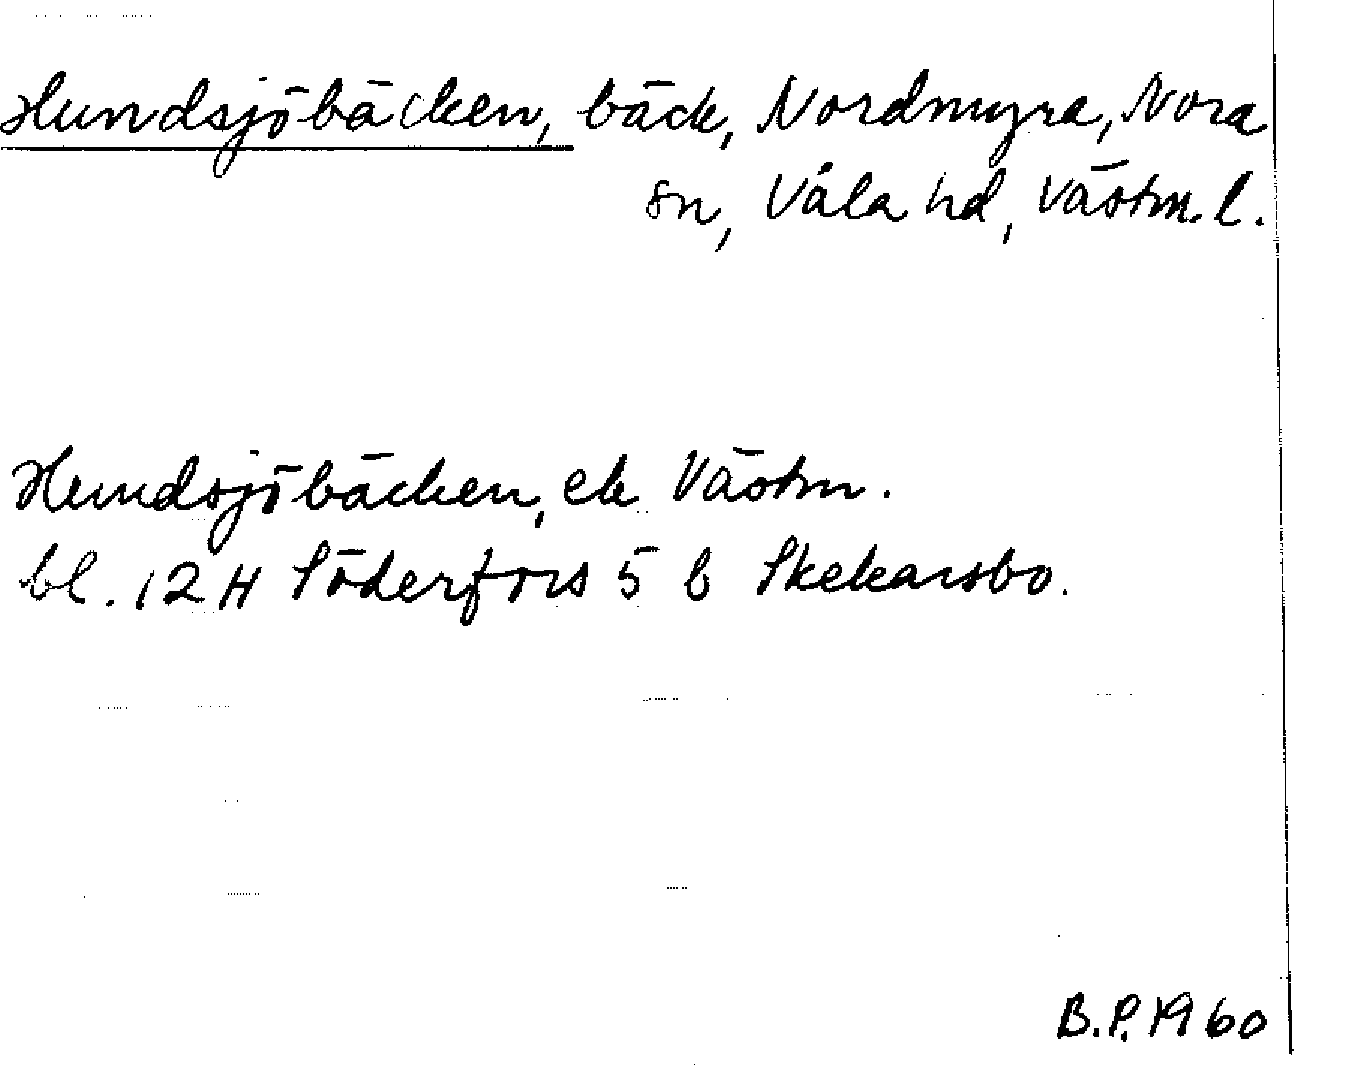 Hundsjöbäcken, bäck, Nordmyra, Nora
sn, Våla hd, Västm. l.
Hundsjöbäcken, ek Västm.
bl. 12 H Söderfors 5 b Skekarsbo.
B.P. 1960